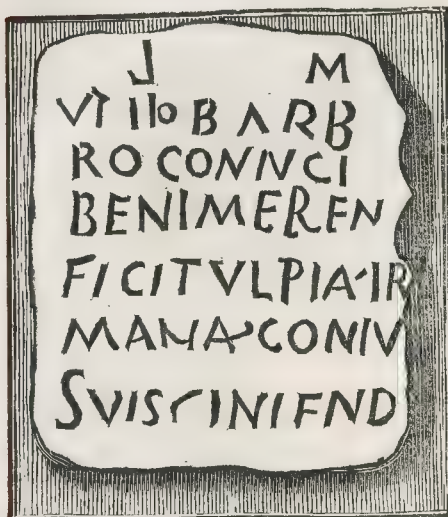 J M
VT IIO BARB
RO CONIVCI
BENIMEREN
FICIT VLPIA·IR
MANA·CONIV
SVIS INIFND